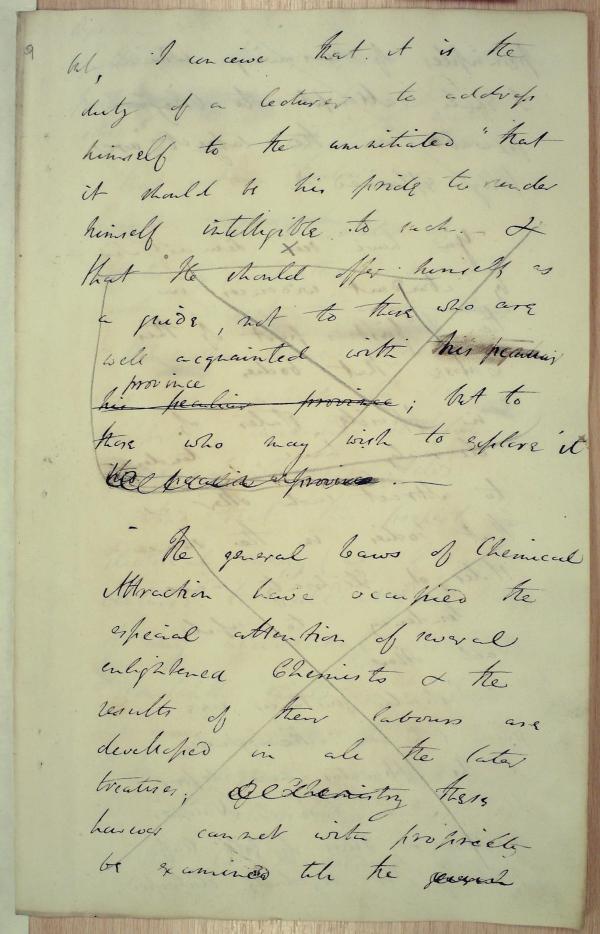 9
but, I conceive that it is the
duty of a lecturer to address
himself to the uninitiated "that
it should be his pride to render
himself intelligible to such. - &
that he should offer himself as
a guide, not to those who are
well acquainted with his peculiar
province
his peculiar province; but to
those who may wish to explore it
his peculiar province. —
The general Laws of Chemical
Attraction have occupied the
especial attention of several
enlightened Chemists & the
results of their labours are
developed in all the later
treatises; of Chemistry these
however cannot with propriety
be examined till the